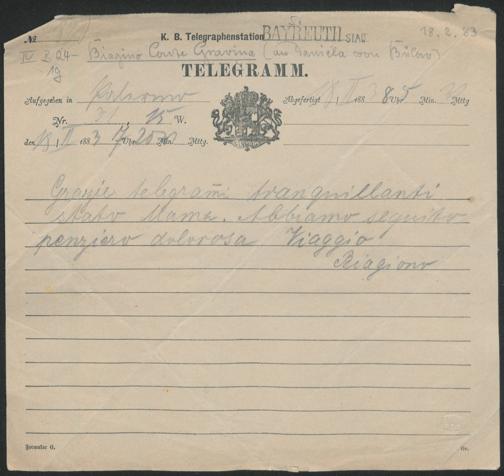 №
K. B. Telegraphenstation BAYREUTH STADT
18.2.83
IV B 24-
19
Biagino Conte Gravina (an Daniela von Bülow)
TELEGRAMM.
Aufgegeben in Palermo
Abgefertigt 18 II 1883 8 Uhr 5 Min. Mttg
Nr. 15 W.
den 18 II 1883 7 Uhr 20 Min. Mttg.
Grazie telegrami tranquillanti
stato Mama. Abbiamo seguito
penziero dolorosa Viaggio
Biagiono
Formular G.